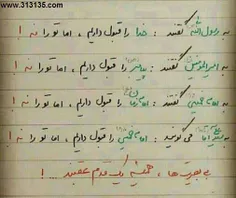 www.313135.com
به رسول الله گفتند : خدا را قبول داریم ، اما تو را نه !
به امیرالمومنین گفتند : پیامبر را قبول داریم ، اما تو را نه !
به امام خمینی گفتند : امام زمان را قبول داریم ، اما تو را نه !
به می گویند : امام خمینی را قبول داریم ، اما تو را نه !
بی بصیرت ها ، همیشه یک قدم عقبند ... !